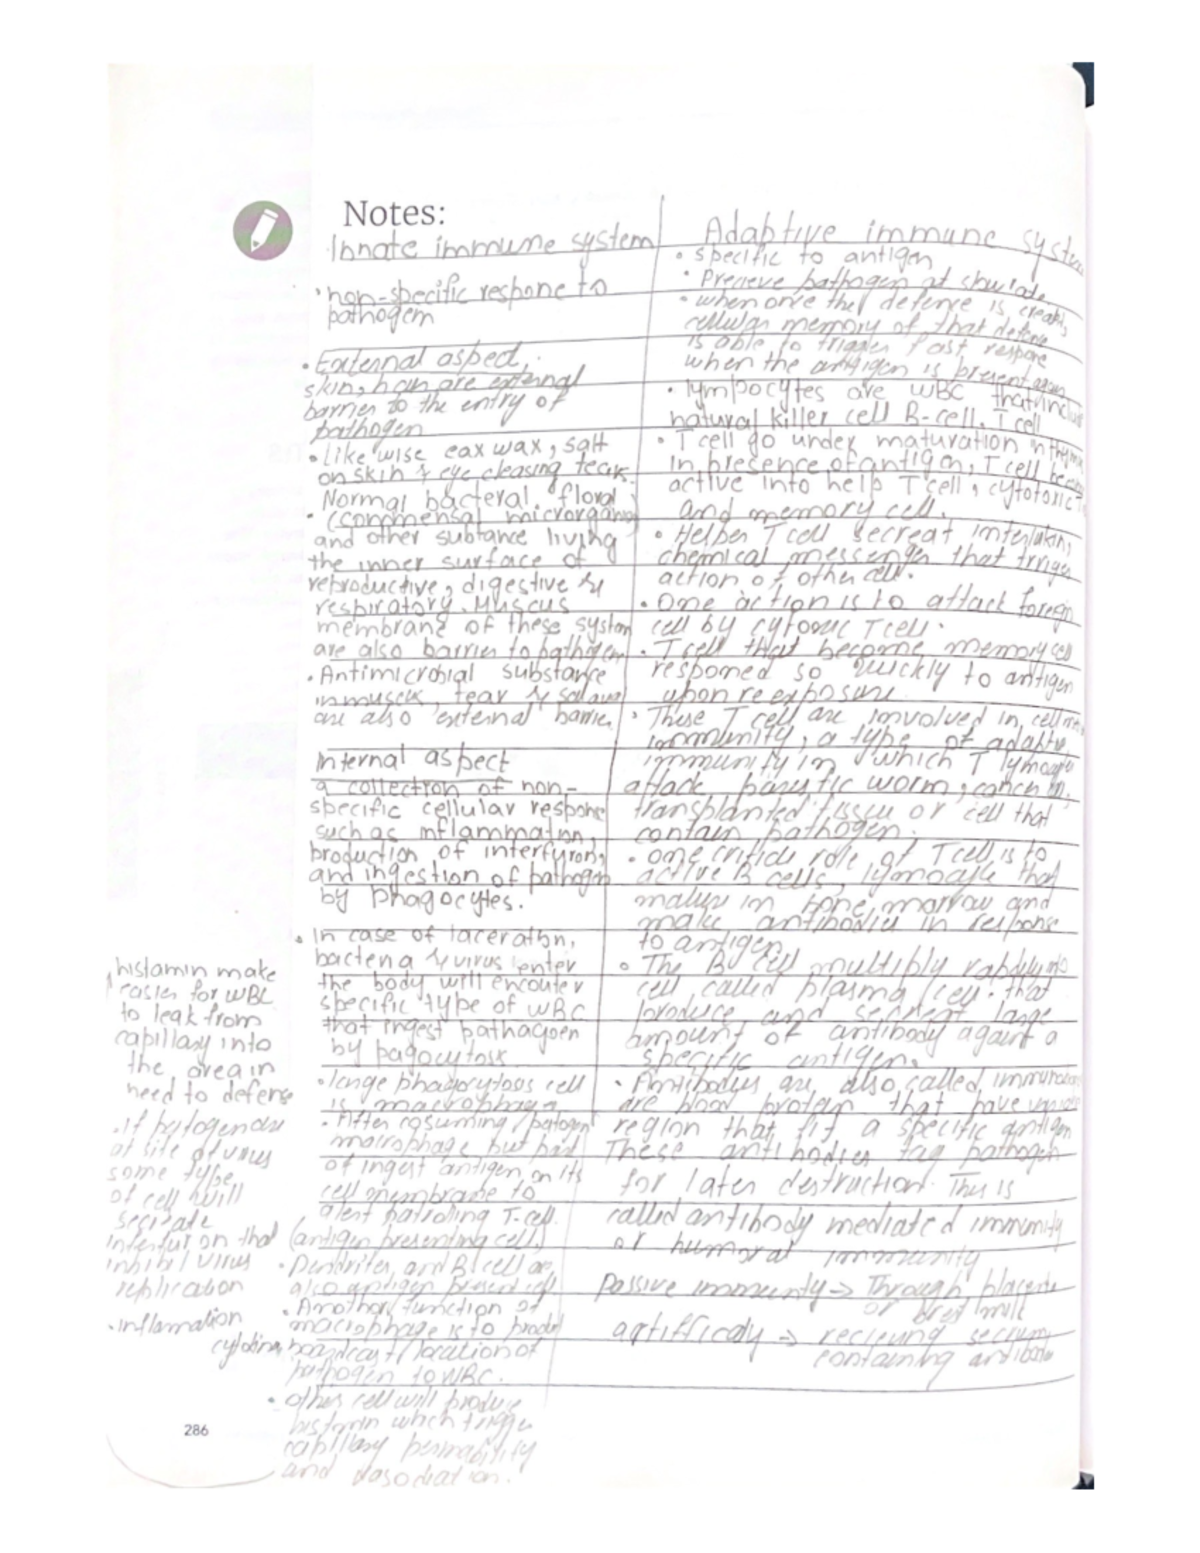 Notes:
Innate immune system
non-specific respone to
pathogem
External aspect
skin, hair are external
barrier to the entry of
pathogen
Like wise eax wax, salt
on skin & eye cleasing tears
Normal bacteral floral
(commensal microrganism
and other subtance living
the inner surface of
reproductive, digestive &
respiratory. Muscus
membrane of these system
are also barrier to pathogen
Antimicrobial substance
in muscus, tear & saliva
are also external barrier
Internal aspect
a collection of non-
specific cellular respone
such as inflammation,
production of interfyron,
and ingestion of pathogen
by phagocytes.
In case of laceration,
bacteria & virus enter
the body will encouter
specific type of WBC
that ingest pathagoen
by pagocytosis
large phagocytous cell
is macrophage
After cosuming patogen
macrophage but part
of ingest antigen on its
cell membrane to
alert patroling T-cell.
(antigen presenting cell)
Dendrites, and B cell are
also antigen present cell
Another function of
macrophage is to produ
cytokine, boardcast location of
pathogen to WBC.
other cell will produce
histamin which trigge
capillary permability
and vasodiation.
histamin make
easier for WBC
to leak from
capillary into
the area in
need to defense
if patogen are
at site of virus
some type
of cell will
secreate
interfuron that
inhibil virus
replication
inflamation
Adaptive immune system
specific to antigen
Precieve pathogen at
when once the defence is create,
cellular memory of that defense
is able to trigger fast respone
when the antigen is present
lympocytes are WBC that include
natural killer cell B-cell, T cell
T cell go under maturation in thymus
in presence of antigen, T cell become
active into help T cell, cytotoxic
and memory cell.
Helper T cell secreat interlukin,
chemical messenger that triger
action of other cell.
One action is to attack foreign
cell by cytoxic T cell.
T cell that become memory cell
respomed so quickly to antigen
upon reexposure.
These T cell are involved in, cell
immunity, a type of adaptive
immunity in which T lymocyte
attack parasitic worm, cancer
transplanted tisseu or cell that
contain pathogen.
one critical role of T cell is to
active B cells, lymocyte that
mature in bone marrow and
make antibodies in response
to antigen
The B cell multibly rabdly into
cell called plasma cell. that
produce and secreat large
amount of antibody againt a
specific antigen.
Antibodys are also called
are blood protein that have
region that fit a specific antigen
These antibodies tag pathogen
for later destruction. This is
called antibody mediated immunity
or humoral immunity
Passive immunty → Through placente
or brest milk
artifficaly → recieving
containing antibodi
286